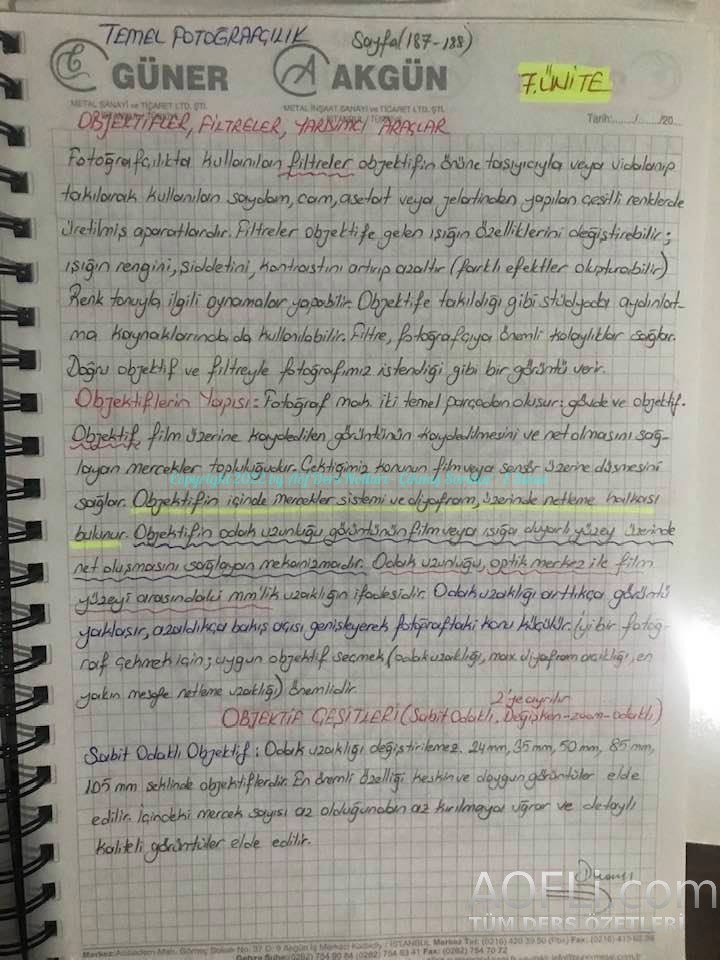 TEMEL FOTOĞRAFÇILIK
Sayfa (187-188)
GÜNER
AKGÜN
7. ÜNİTE
METAL SANAYİ ve TİCARET LTD. ŞTİ.
METAL İNŞAAT SANAYİ ve TİCARET LTD. ŞTİ.
İSTANBUL / TÜRKİYE
Tarih:....../....../20....
OBJEKTİFLER, FİLTRELER, YARDIMCI ARAÇLAR
Fotoğrafçılıkta kullanılan filtreler objektifin önüne taşıyıcıyla veya vidalanıp
takılarak kullanılan saydam, cam, asetat veya jelatinden yapılan çeşitli renklerde
üretilmiş aparatlardır. Filtreler objektife gelen ışığın özelliklerini değiştirebilir;
ışığın rengini, şiddetini, kontrastını artırıp azaltır (farklı efektler oluşturabilir)
Renk tonuyla ilgili oynamalar yapabilir. Objektife takıldığı gibi stüdyoda aydınlat-
ma kaynaklarında da kullanılabilir. Filtre, fotoğrafçıya önemli kolaylıklar sağlar.
Doğru objektif ve filtreyle fotoğrafımız istendiği gibi bir görüntü verir.
Objektiflerin Yapısı: Fotoğraf mak. iki temel parçadan oluşur: gövde ve objektif.
Objektif, film üzerine kaydedilen görüntünün kaydedilmesini ve net olmasını sağ-
layan mercekler topluluğudur. Çektiğimiz konunun film veya sensör üzerine düşmesini
sağlar. Objektifin içinde mercekler sistemi ve diyafram, üzerinde netleme halkası
bulunur. Objektifin odak uzunluğu görüntünün film veya ışığa duyarlı yüzey üzerinde
net oluşmasını sağlayan mekanizmadır. Odak uzunluğu, optik merkez ile film
yüzeyi arasındaki mm'lik uzaklığın ifadesidir. Odak uzaklığı arttıkça görüntü
yaklaşır, azaldıkça bakış açısı genişleyerek fotoğraftaki konu küçülür. İyi bir fotoğ-
raf çekmek için; uygun objektif seçmek (odak uzaklığı, max. diyafram açıklığı, en
yakın mesafe netleme uzaklığı) önemlidir.
2'ye ayrılır
OBJEKTİF ÇEŞİTLERİ (Sabit Odaklı, Değişken-zoom-odaklı)
Sabit Odaklı Objektif: Odak uzaklığı değiştirilemez. 24mm, 35mm, 50mm, 85mm,
105 mm şeklinde objektiflerdir. En önemli özelliği keskin ve doygun görüntüler elde
edilir. İçindeki mercek sayısı az olduğundan az kırılmaya uğrar ve detaylı
kaliteli görüntüler elde edilir.
AOFLI.com
TÜM DERS ÖZETLERİ